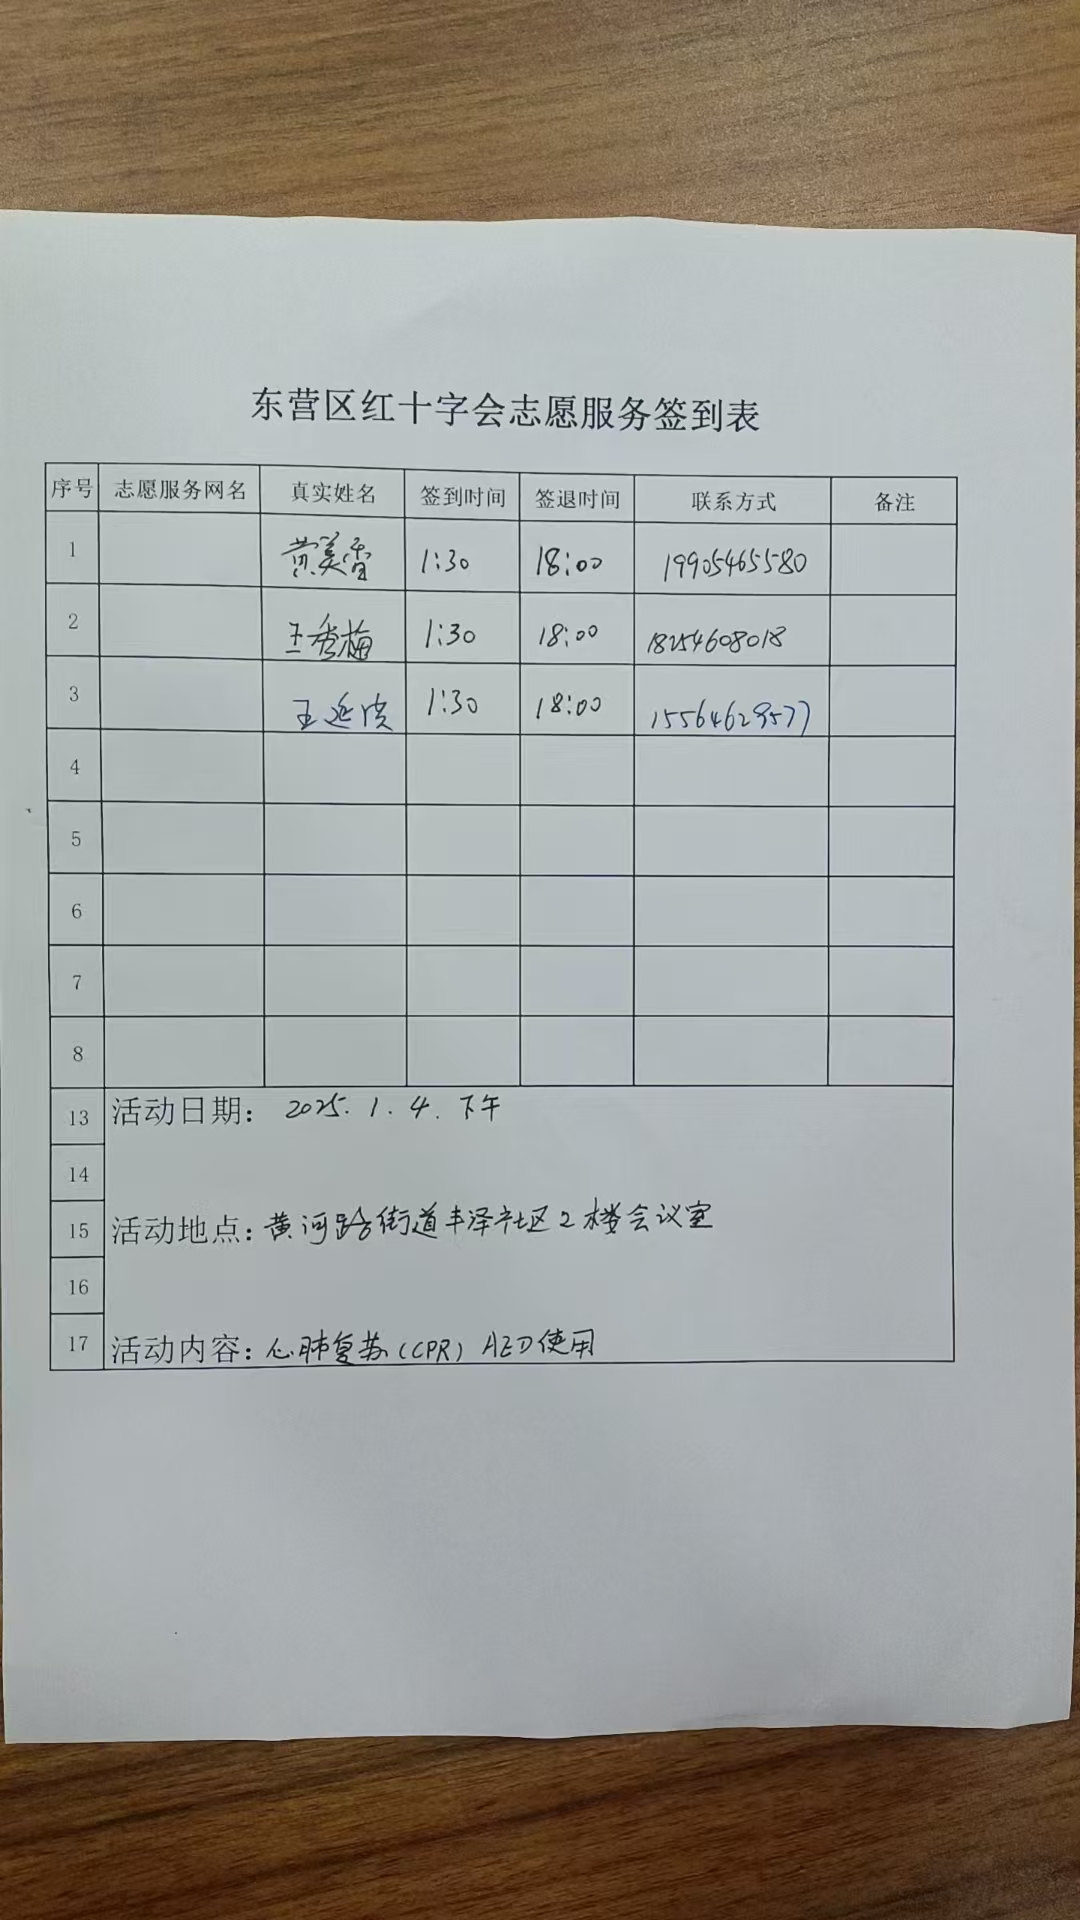 东营区红十字会志愿服务签到表
序号 志愿服务网名 真实姓名 签到时间 签退时间 联系方式 备注
1 黄美香 1:30 18:00 19905465580
2 王秀梅 1:30 18:00 18254608018
3 王延 1:30 18:00 15564629577
4
5
6
7
8
13 活动日期: 2025.1.4.下午
14
15 活动地点: 黄河路街道丰泽社区2楼会议室
16
17 活动内容: 心肺复苏(CPR) AED使用